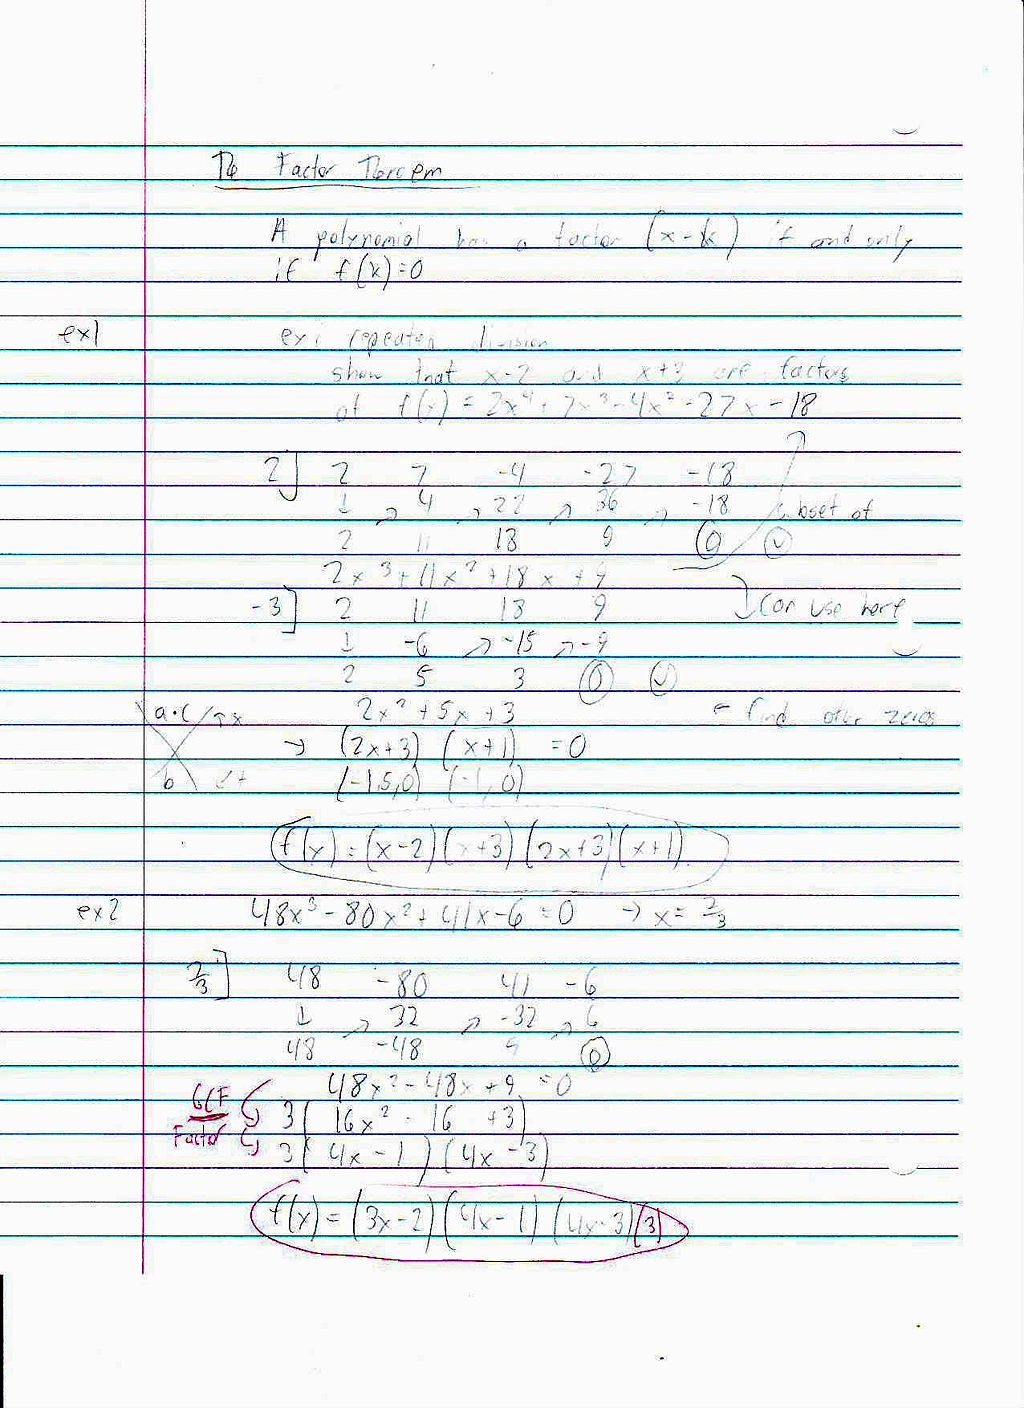 The Factor Theroem
A polynomial has a factor (x-k) if and only
if f(k)=0
ex1
ex: repeated division
show that x-2 and x+3 are factors
of f(x) = 2x⁴+7x³-4x²-27x-18
2] 2 7 -4 -27 -18
↓ → 4 → 22 → 36 → -18 subset of
2 11 18 9 0 ✓
2x³+11x²+18x+9
-3] 2 11 18 9 ↓ can use here
↓ -6 → -15 → -9
2 5 3 0 ✓
a·c 2x²+5x+3 ← find other zeros
→ (2x+3) (x+1) =0
b (-1.5,0) (-1,0)
f(x)=(x-2)(x+3)(2x+3)(x+1)
ex2 48x³-80x²+41x-6=0 → x=2/3
2/3] 48 -80 41 -6
↓ → 32 → -32 → 6
48 -48 9 0
48x²-48x+9=0
GCF 3( 16x² - 16 +3)
Factor 3( 4x-1)(4x-3)
f(x)=(3x-2)(4x-1)(4x-3)(3)